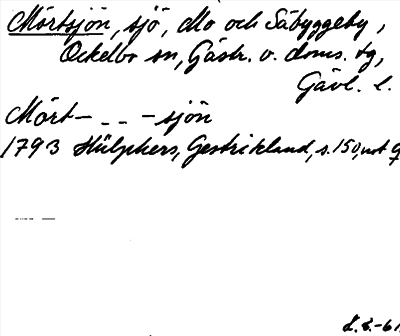 Mörtsjön, sjö, Mo och Säbyggeby,
Ockelbo sn, Gästr. v. doms. tg,
Gävl. l.
Mört- - - -sjön
1793 Hülphers, Gestrikland, s. 150, not q